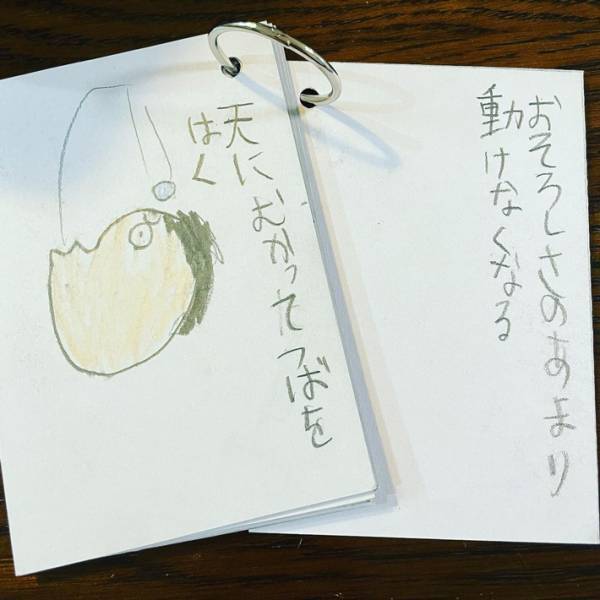 おそろしさのあまり
動けなくなる
天にむかってつばを
はく